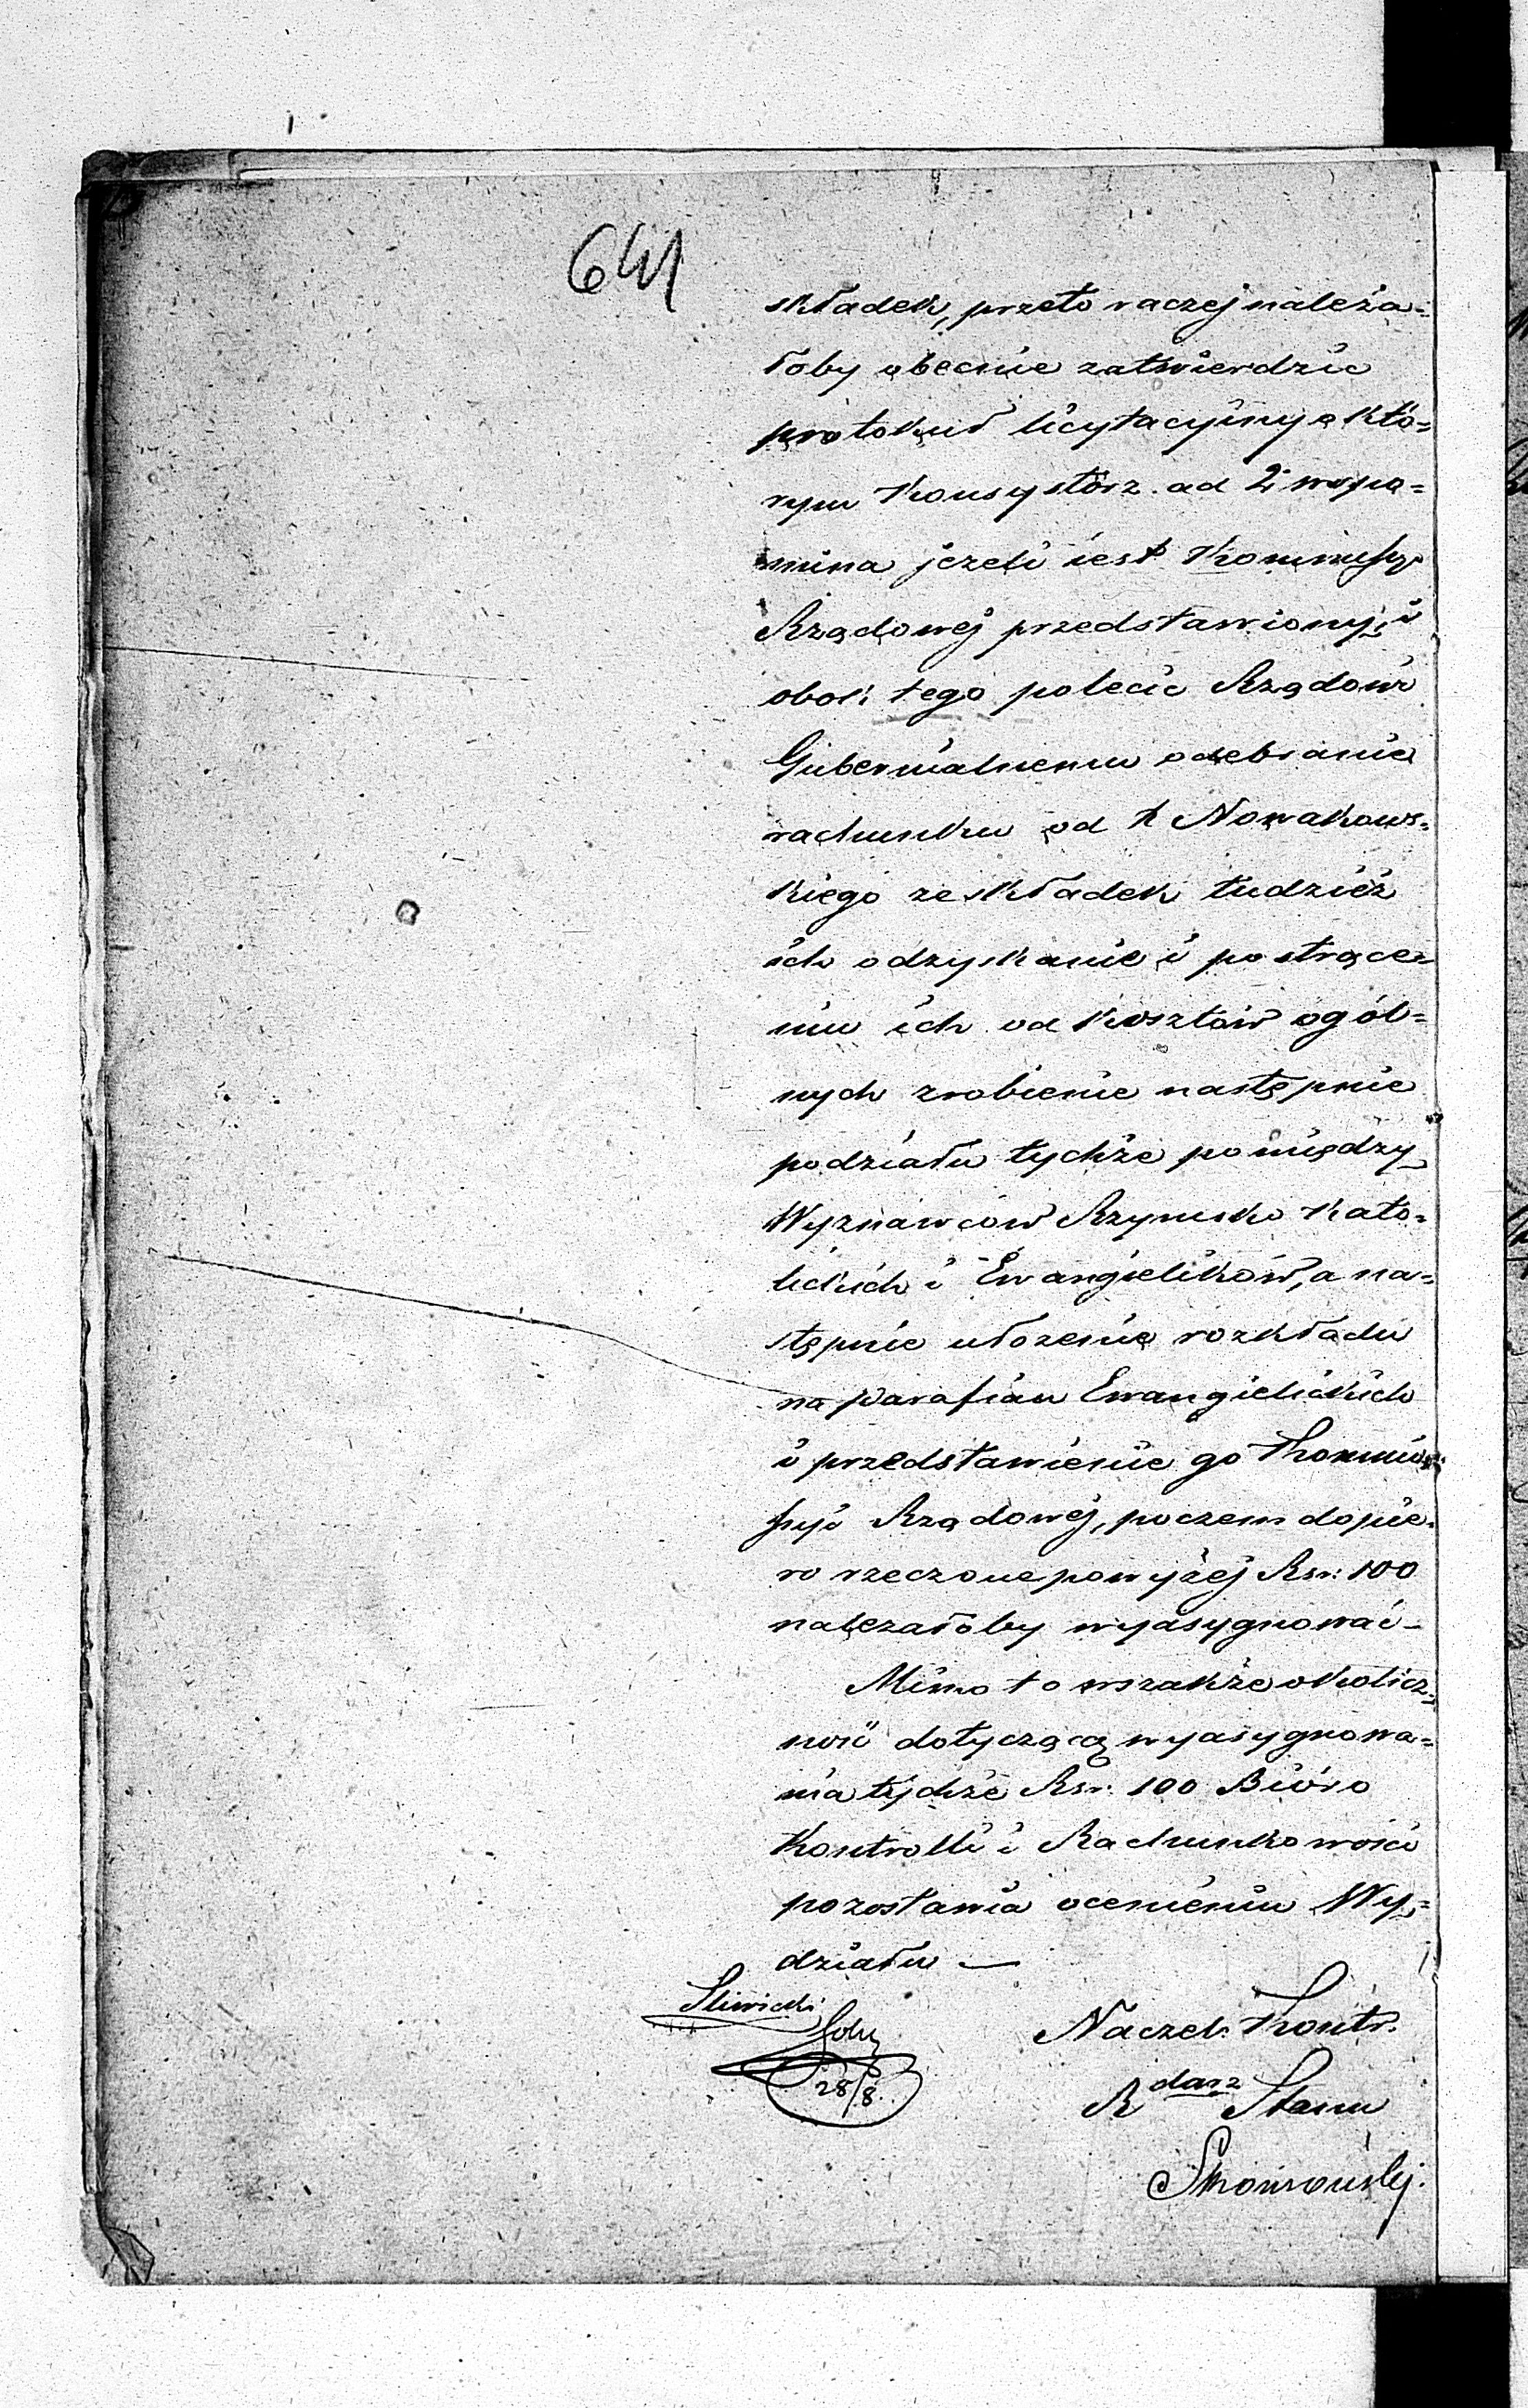 641
składek, przeto raczej należa=
łoby obecnie zatwierdzić
protokuł licytacyiny o któ=
rym Konsystorz ad 2. wspo=
mina jeżeli iest Kommissyi
Rządowej przedstawiony, i
obok tego polecić Rządowi
Gubernialnemu odebranie
rachunku od P. Nowakows=
kiego ze składek tudzież
ich odzyskanie i po strące=
niu ich od kosztów ogól=
nych zrobienie następnie
podziału tychże pomiędzy
Wyznawców Rzymsko Kato=
lickich i Ewangielików, a na=
stępnie ułożenie rozkładu
na parafian Ewangielickich
i przedstawienie go Kommis=
syi Rządowej, poczem dopie=
ro rzeczone powyżej Rsr: 100
należałoby wyasygnować –
Mimo to wszakże okolicz=
ność dotyczącą wyasygnowa=
nia tychże Rsr: 100 Bióro
Kontrolli i Rachunkowości
pozostawia ocenieniu Wy=
działu —
Sliwicki
Naczel. Kontr.
28/8.
R darz Stanu